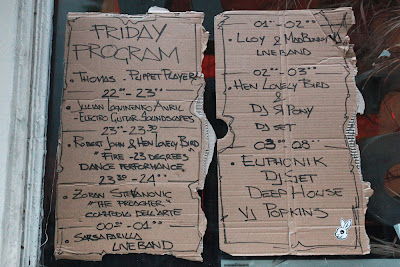 FRIDAY
PROGRAM
• THOMAS - PUPPET PLAYER
22°° - 23°°
• JULIAN LOGINENKO AVRIL
- ELECTRO GUITAR SOUNDSCAPES
23°° - 23³⁰
• ROBERT JOHN & HEN LOVELY BIRD
"FIRE -23 DEGREES"
DANCE PERFORMANCE
23³⁰ - 24°°
• ZORAN STEVANOVIC
"THE PREACHER"
COMMEDIA DELL'ARTE
00°° - 01°°
• SARSAPARILLA
LIVE BAND
01°° - 02°°
• LLOY & MADBUNNY VJ
LIVE BAND
02°° - 03°°
• HEN LOVELY BIRD
&
DJ PONY
DJ SET
03°° 08°°
• EUPHONIK
DJ SET
DEEP HOUSE
VJ POPKINS